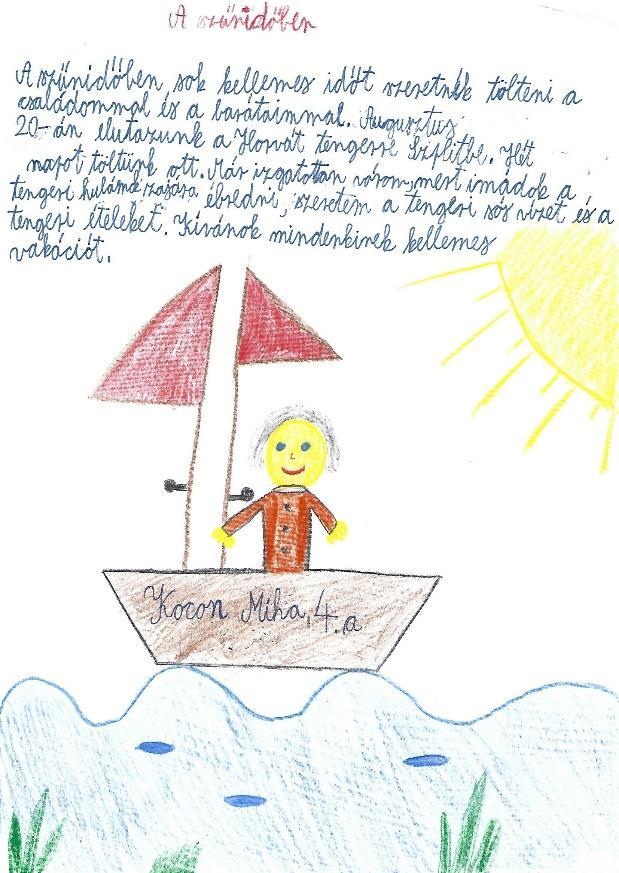 A szünidőben
A szünidőben sok kellemes időt szeretnék tölteni a
családommal és a barátaimmal. Augusztus
20-án elutazunk a Horvát tengerre Szplitbe. Hét
napot töltünk ott. Már izgatottan várom, mert imádok a
tengeri hullámok zajára ébredni, szeretem a tengeri sós vizet és a
tengeri ételeket. Kívánok mindenkinek kellemes
vakációt.
Kocon Miha, 4. a